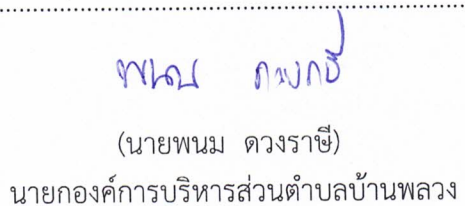 พนม ดวงราษี
(นายพนม ดวงราษี)
นายกองค์การบริหารส่วนตำบลบ้านพลวง